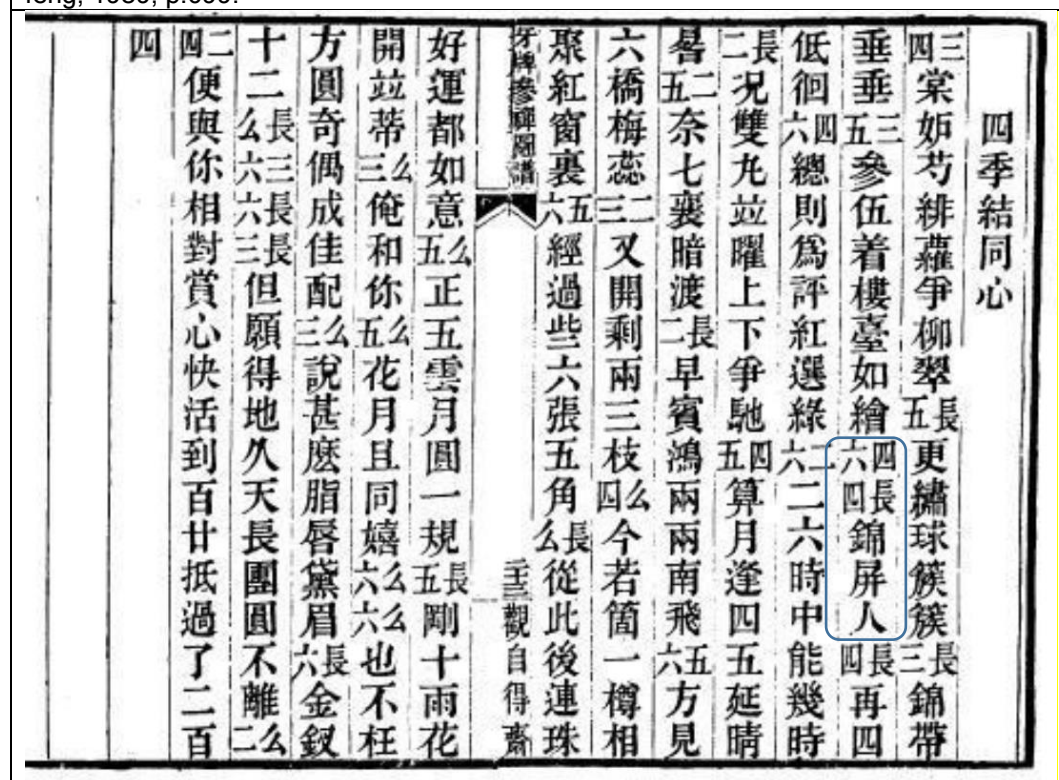 四季結同心
三四棠妒芍緋蘿爭柳翠長五更繡球簇簇長三錦帶
垂垂三五參伍着樓臺如繪四六長四錦屏人長四再四
低徊四六總則爲評紅選綠二六二六時中能幾時
長二况雙丸竝曜上下爭馳四五算月逢四五延晴
晷二五奈七襄暗渡長二早賓鴻兩兩南飛五六方見
六橋梅蕊二三又開剩兩三枝么四今若箇一樽相
聚紅窗裏五六經過些六張五角長么從此後連珠
牙牌參禪圖譜 觀自得齋
好運都如意么五正五雲月圓一規長五剛十雨花
開竝蒂么三俺和你么五花月且同嬉么六么六也不枉
方圓奇偶成佳配么三說甚麽脂唇黛眉長六金釵
十二長么三六長六長三但願得地久天長團圓不離么二
二四便與你相對賞心快活到百廿抵過了二百
四